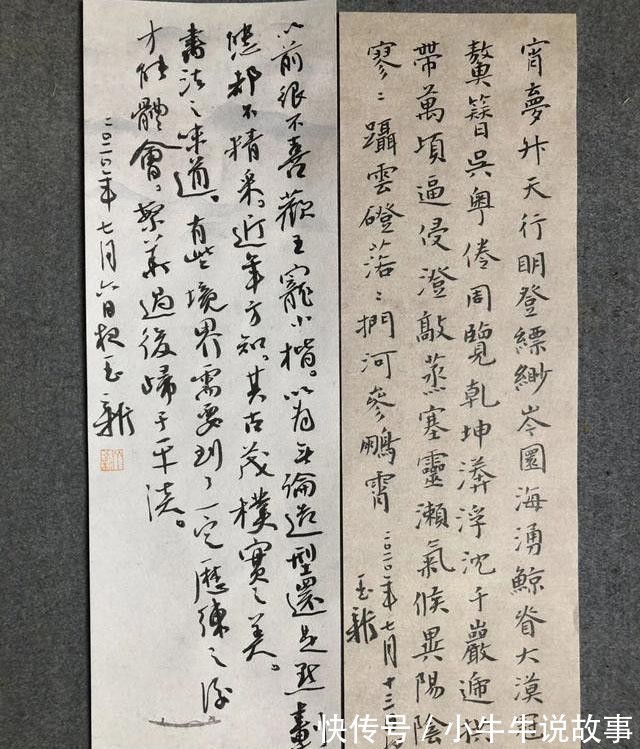 宵夢升天行明登縹緲岑圜海湧鯨脊大漠
鼇簪吳粵倦周覽乾坤漭浮沈千巖遞
帶萬頃逼侵澄敲蒸塞靈瀨氣候異陽陰
寥〻躡雲磴落〻捫河參鵬霄 二〇二〇年七月十三
玉新
以前很不喜歡王寵小楷。以为无論造型還是點畫
態都不精采。近年方知。其古茂樸實之美。
書法之味道。有些境界需要到了一定歷練之後
才能體會。繁華過後歸于平淡。
二〇二〇年七月六日夜玉新
快传号/小牛牛说故事